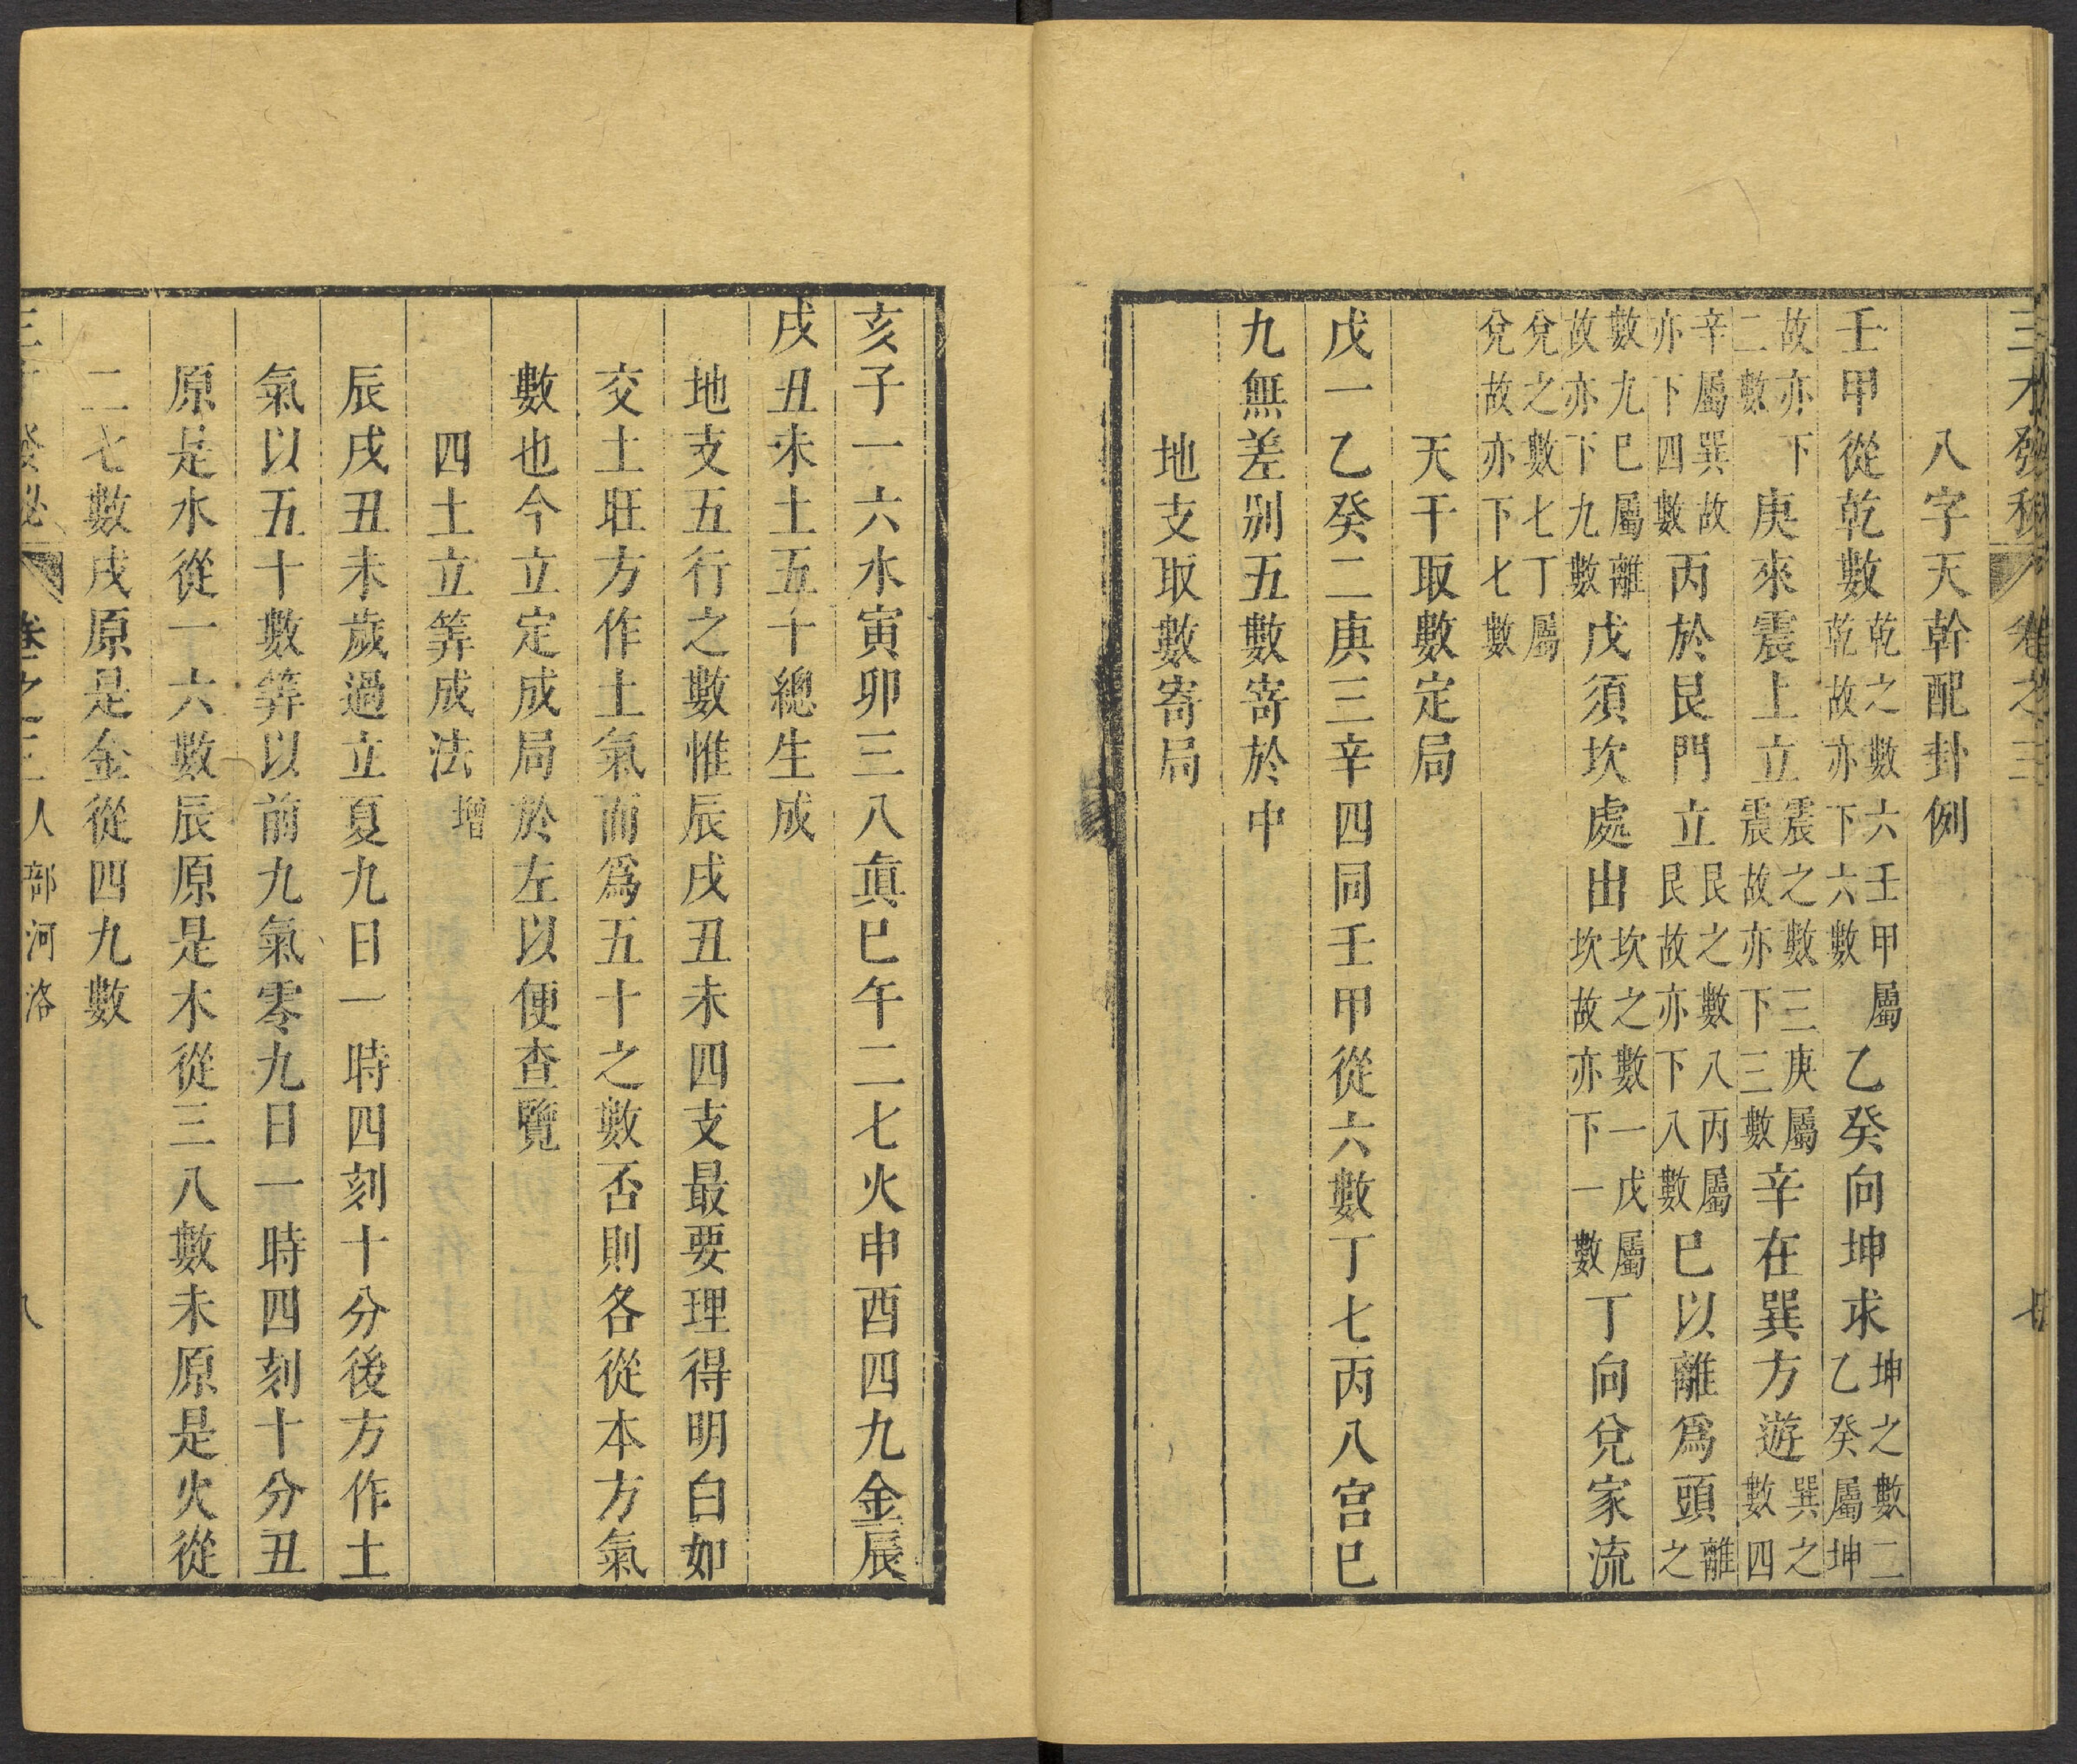 三才發秘 卷之三 七
八字天幹配卦例
壬甲從乾數乾之數六壬甲屬乾故亦下六數乙癸向坤求坤之數二乙癸屬坤
故亦下二數庚來震上立震之數三庚屬震故亦下三數辛在巽方遊巽之數四
辛屬巽故亦下四數丙於艮門立艮之數八丙屬艮故亦下八數巳以離爲頭離之
數九巳屬離故亦下九數戊須坎處出坎之數一戊屬坎故亦下一數丁向兌家流
兌之數七丁屬兌故亦下七數
天干取數定局
戊一乙癸二庚三辛四同壬甲從六數丁七丙八宮巳
九無差別五數寄於中
地支取數寄局
亥子一六水寅卯三八眞巳午二七火申酉四九金辰
戌丑未土五十總生成
地支五行之數惟辰戌丑未四支最要理得明白如
交土旺方作土氣而爲五十之數否則各從本方氣
數也今立定成局於左以便查覽
四土立筭成法 增
辰戌丑未歲過立夏九日一時四刻十分後方作土
氣以五十數筭以前九氣零九日一時四刻十分丑
原是水從一六數辰原是木從三八數未原是火從
二七數戌原是金從四九數
三才發秘 卷之三 人部河洛 八